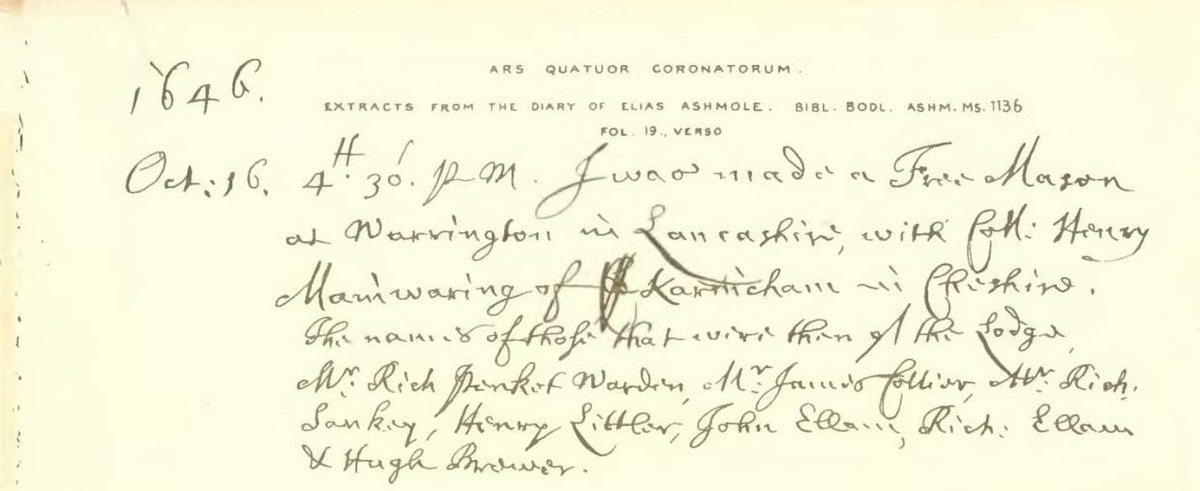 1646.
ARS QUATUOR CORONATORUM.
EXTRACTS FROM THE DIARY OF ELIAS ASHMOLE. BIBL. BODL. ASHM. MS. 1136
FOL. 19., VERSO
Oct: 16. 4H. 30'. P.M. I was made a Free Mason
at Warrington in Lancashire, with Coll: Henry
Mainwaring of Karincham in Cheshire.
The names of those that were then of the Lodge,
Mr. Rich Penket Warden, Mr. James Collier, Mr. Rich.
Sankey, Henry Littler, John Ellam, Rich: Ellam
& Hugh Brewer.